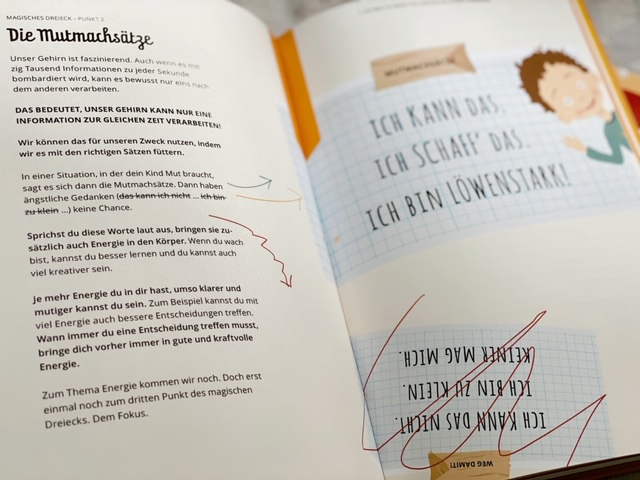 MAGISCHES DREIECK – PUNKT 2
Die Mutmachsätze
Unser Gehirn ist faszinierend. Auch wenn es mit
zig Tausend Informationen zu jeder Sekunde
bombardiert wird, kann es bewusst nur eins nach
dem anderen verarbeiten.
DAS BEDEUTET, UNSER GEHIRN KANN NUR EINE
INFORMATION ZUR GLEICHEN ZEIT VERARBEITEN!
Wir können das für unseren Zweck nutzen, indem
wir es mit den richtigen Sätzen füttern.
In einer Situation, in der dein Kind Mut braucht,
sagt es sich dann die Mutmachsätze. Dann haben
ängstliche Gedanken (das kann ich nicht ... ich bin
zu klein ...) keine Chance.
Sprichst du diese Worte laut aus, bringen sie zu-
sätzlich auch Energie in den Körper. Wenn du wach
bist, kannst du besser lernen und du kannst auch
viel kreativer sein.
Je mehr Energie du in dir hast, umso klarer und
mutiger kannst du sein. Zum Beispiel kannst du mit
viel Energie auch bessere Entscheidungen treffen.
Wann immer du eine Entscheidung treffen musst,
bringe dich vorher immer in gute und kraftvolle
Energie.
Zum Thema Energie kommen wir noch. Doch erst
einmal noch zum dritten Punkt des magischen
Dreiecks. Dem Fokus.
MUTMACHSÄTZE
ICH KANN DAS.
ICH SCHAFF' DAS.
ICH BIN LÖWENSTARK!
WEG DAMIT!
ICH KANN DAS NICHT.
ICH BIN ZU KLEIN.
KEINER MAG MICH.